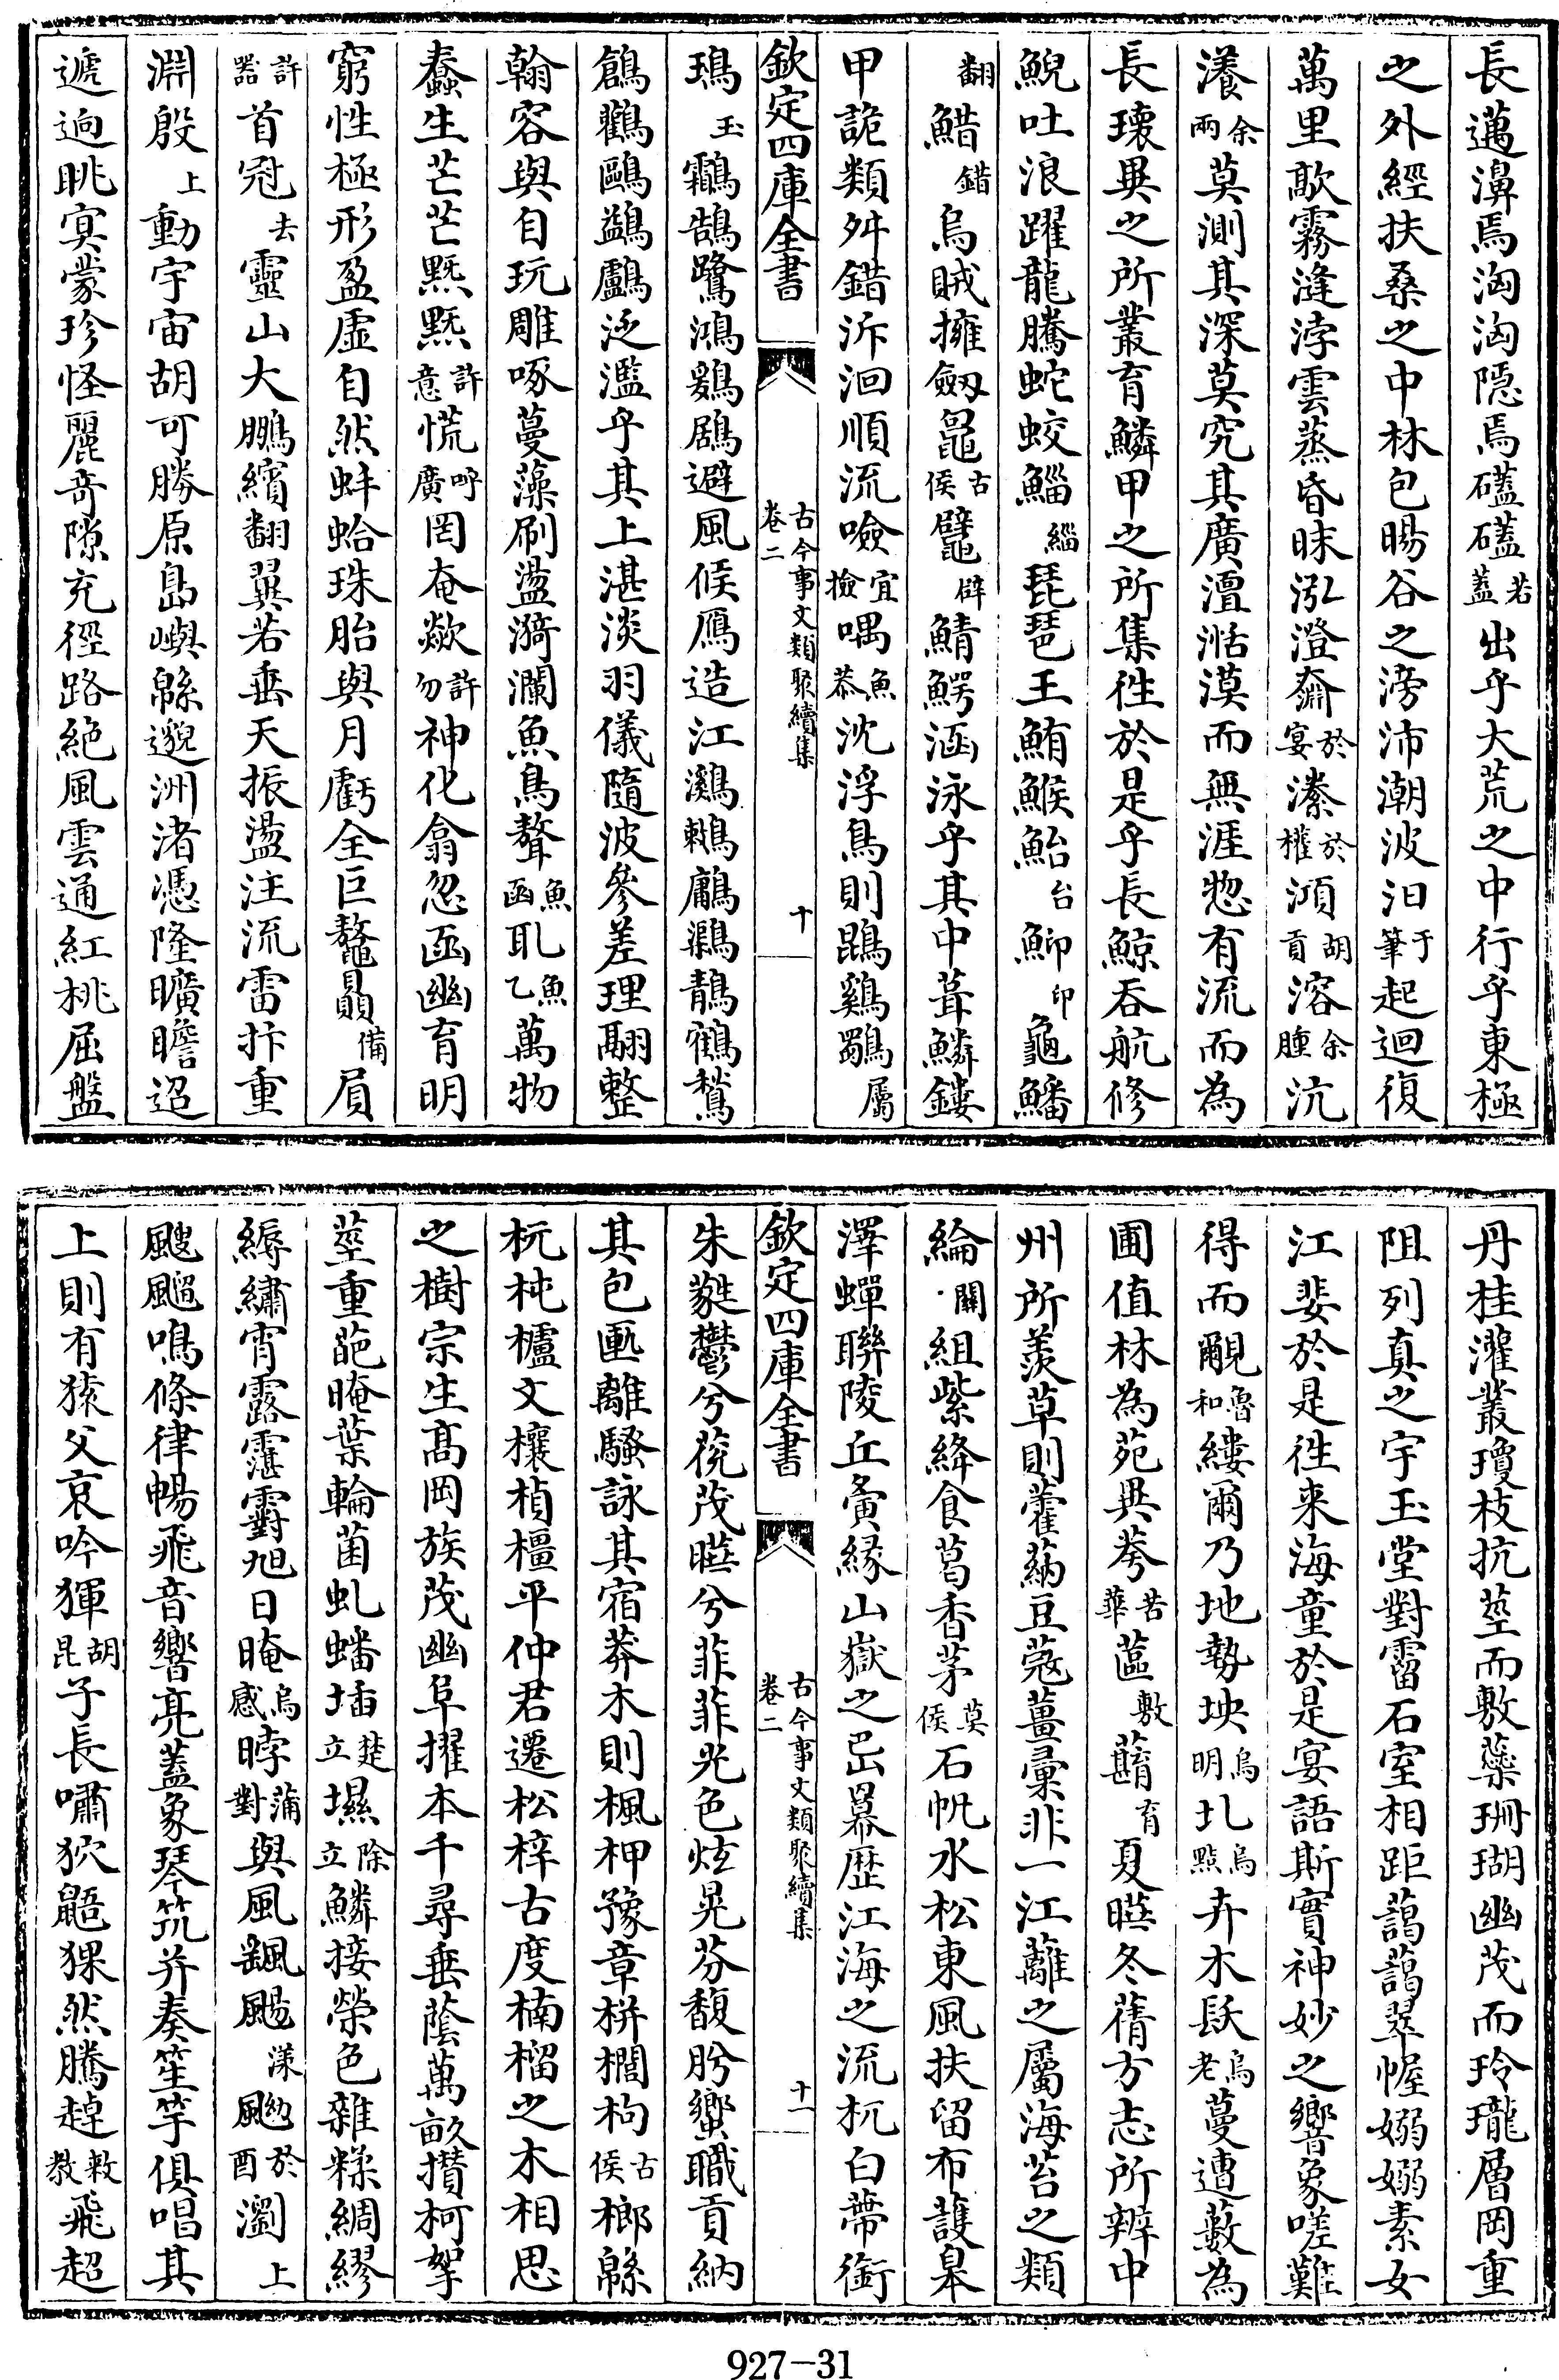 長邁濞焉洶洶隱焉礚礚若蓋出乎大荒之中行乎東極
之外經扶桑之中林包暘谷之滂沛潮波汩于筆起迴復
萬里歊霧漨浡雲蒸昏昧泓澄奫於宴潫於權澒胡貢溶余腫沆
瀁余兩莫測其深莫究其廣澶湉漠而無涯惣有流而為
長瓌異之所叢育鱗甲之所集往於是乎長鯨吞航修
鯢吐浪躍龍騰蛇蛟鯔緇琵琶王鮪鯸鮐台鮣印龜鱕
翻䱜錯烏賊擁劔鼊古侯鼊辟鯖鰐涵泳乎其中葺鱗鏤
甲詭類舛錯泝洄順流噞宜檢喁魚恭沈浮鳥則鵾鷄鸀屬
欽定四庫全書 古今事文類聚續集 卷二 十
鳿玉鸘鵠鷺鴻鶢鶋避風候鴈造江鸂鶒鷛䴌鶄鶴鶖
鶬鸛鷗鷁鸕泛濫乎其上湛淡羽儀隨波參差理翮整
翰容與自玩雕啄蔓藻刷盪漪瀾魚鳥聱魚函耴魚乙萬物
蠢生芒芒黖黖許意慌呼廣罔奄歘許勿神化翕忽函幽育明
窮性極形盈虛自然蚌蛤珠胎與月虧全巨鼇贔備屓
許器首冠去靈山大鵬繽翻翼若垂天振盪汪流雷抃重
淵殷上動宇宙胡可勝原島嶼緜邈洲渚憑隆曠瞻迢
遞逈眺寞蒙珍怪麗竒隙充徑路絕風雲通紅桃屈盤
丹桂灌叢瓊枝抗莖而敷蘂珊瑚幽茂而玲瓏層岡重
阻列真之宇玉堂對霤石室相距藹藹翠幄嫋嫋素女
江婓於是往来海童於是宴語斯實神妙之響象嗟難
得而覶魯和縷爾乃地勢坱烏明圠烏點卉木镺烏老蔓遭藪為
圃值林為苑異荂苦華蓲敷蘛育夏曄冬蒨方志所辨中
州所羡草則藿蒳豆蔻薑彚非一江蘺之屬海苔之類
綸關組紫絳食葛香茅莫侯石帆水松東風扶留布護皋
澤蟬聯陵丘夤緣山嶽之岊冪歷江海之流杌白蔕銜
欽定四庫全書 古今事文類聚續集 卷二 十一
朱蕤鬱兮䓲茂曄兮菲菲光色炫晃芬馥肹蠁職貢納
其包匭離騷詠其宿莽木則楓柙豫章栟櫚枸古侯榔緜
杬杶櫨文欀楨橿平仲君遷松梓古度楠榴之木相思
之樹宗生髙岡族茂幽阜擢本千尋垂蔭萬畝攢柯挐
莖重葩晻葉輪菌虬蟠插楚立㙷除立鱗接榮色雜糅綢繆
縟繡宵露霮䨴旭日晻烏感㫲蒲對與風䬙颺漾䬀於酉瀏上
颼飀鳴條律暢飛音響亮蓋象琴筑并奏笙竽俱唱其
上則有猿父哀吟㹆胡昆子長嘯狖鼯猓然騰趠敕教飛超
927-31